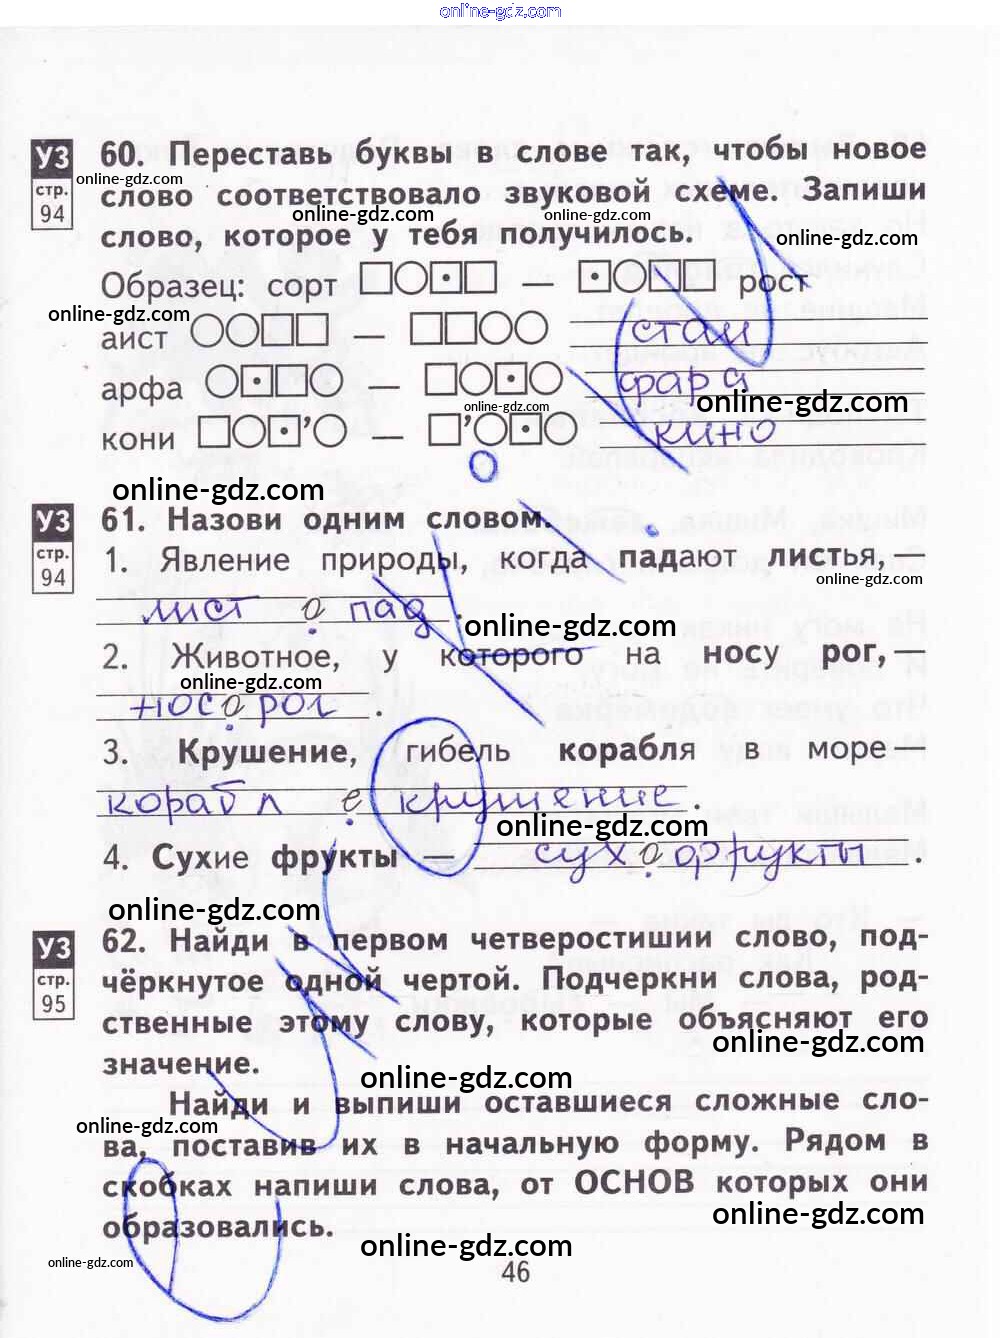 online-gdz.com
УЗ
стр.
94
60. Переставь буквы в слове так, чтобы новое
online-gdz.com
слово соответствовало звуковой схеме. Запиши
online-gdz.com online-gdz.com
слово, которое у тебя получилось.
online-gdz.com
Образец: сорт — рост
online-gdz.com
аист — стаи
арфа — фара
online-gdz.com online-gdz.com
кони — кино
online-gdz.com
УЗ
стр.
94
61. Назови одним словом.
1. Явление природы, когда падают листья, —
online-gdz.com
лист о пад .
online-gdz.com
2. Животное, у которого на носу рог, —
online-gdz.com
нос о рог .
3. Крушение, гибель корабля в море —
корабл е крушение .
online-gdz.com
4. Сухие фрукты — сух о фрукты .
online-gdz.com
УЗ
стр.
95
62. Найди в первом четверостишии слово, под-
чёркнутое одной чертой. Подчеркни слова, род-
ственные этому слову, которые объясняют его
online-gdz.com
значение.
online-gdz.com
Найди и выпиши оставшиеся сложные сло-
online-gdz.com
ва, поставив их в начальную форму. Рядом в
скобках напиши слова, от ОСНОВ которых они
online-gdz.com
образовались.
online-gdz.com
online-gdz.com
46